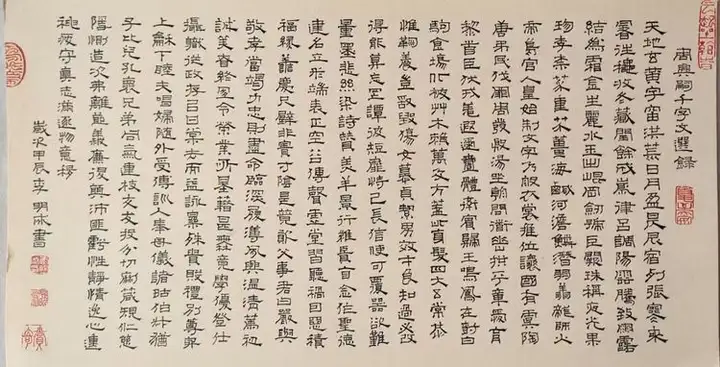 周興嗣千字文選錄
天地玄黃宇宙洪荒日月盈昃辰宿列張寒來
暑往秋收冬藏閏餘成歲律呂調陽雲騰致雨露
結為霜金生麗水玉出崑岡劍號巨闕珠稱夜光果
珍李柰菜重芥薑海鹹河淡鱗潛羽翔龍師火
帝鳥官人皇始制文字乃服衣裳推位讓國有虞陶
唐弔民伐罪周發殷湯坐朝問道垂拱平章愛育
黎首臣伏戎羌遐邇壹體率賓歸王鳴鳳在樹白
駒食場化被草木賴萬方蓋此身髮四大五常恭
惟鞠養豈敢毀傷女慕貞絜男效才良知過必改
得能莫忘罔談彼短靡恃己長信使可覆器欲難
量墨悲絲染詩讚羔羊景行維賢克念作聖德
建名立形端表正空谷傳聲虛堂習聽禍因惡積
福緣善慶尺璧非寶寸陰是競資父事君曰嚴與
敬孝當竭力忠則盡命臨深履薄夙興溫凊篤初
誠美慎終宜令榮業所基籍甚無竟學優登仕
攝職從政存以甘棠去而益詠樂殊貴賤禮別尊卑
上龢下睦夫唱婦隨外受傅訓入奉母儀諸姑伯叔猶
子比兒孔懷兄弟同氣連枝交友投分切磨箴規仁慈
隱惻造次弗離節義廉退顛沛匪虧性靜情逸心動
神疲守真志滿逐物意移
歲次甲辰李明成書